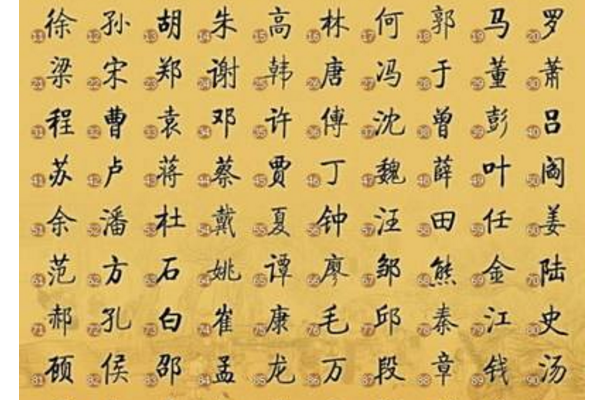 11徐 12孙 13胡 14朱 15高 16林 17何 18郭 19马 20罗
21梁 22宋 23郑 24谢 25韩 26唐 27冯 28于 29董 30萧
31程 32曹 33袁 34邓 35许 36傅 37沈 38曾 39彭 40吕
41苏 42卢 43蒋 44蔡 45贾 46丁 47魏 48薛 49叶 50阎
51余 52潘 53杜 54戴 55夏 56钟 57汪 58田 59任 60姜
61范 62方 63石 64姚 65谭 66廖 67邹 68熊 69金 70陆
71郝 72孔 73白 74崔 75康 76毛 77邱 78秦 79江 80史
81顾 82侯 83邵 84孟 85龙 86万 87段 88章 89钱 90汤